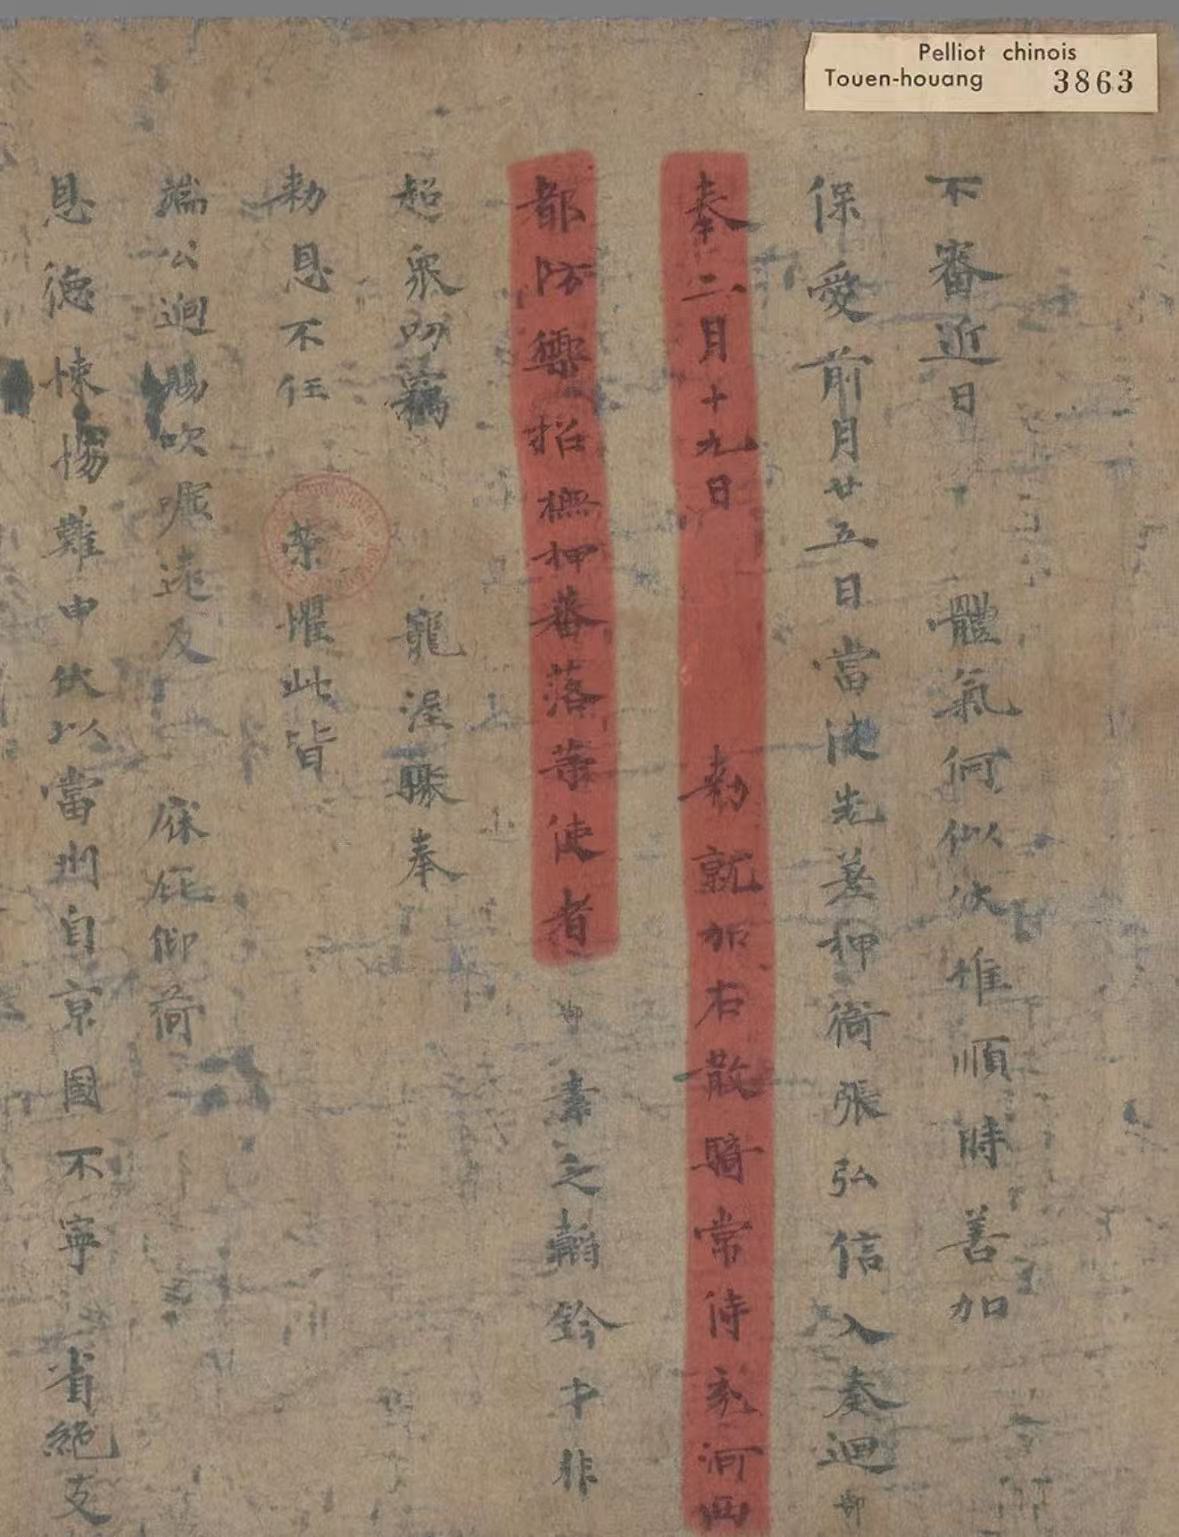 Pelliot chinois
Touen-houang 3863
不審近日 體氣何似伏惟順時善加
保愛前月廿五日當使先差押衙張弘信入奏迴卿
奉二月十九日 勑就加右散騎常侍兼河西
都防禦招撫押蕃落等使者 卿素之韜鈐才非
超衆叨竊 寵渥驟奉
勑恩不任 榮懼此皆
端公迥賜吹噓遠及 庥庇仰荷
恩德悚惕難申伏以當州自京國不寧 省絕支